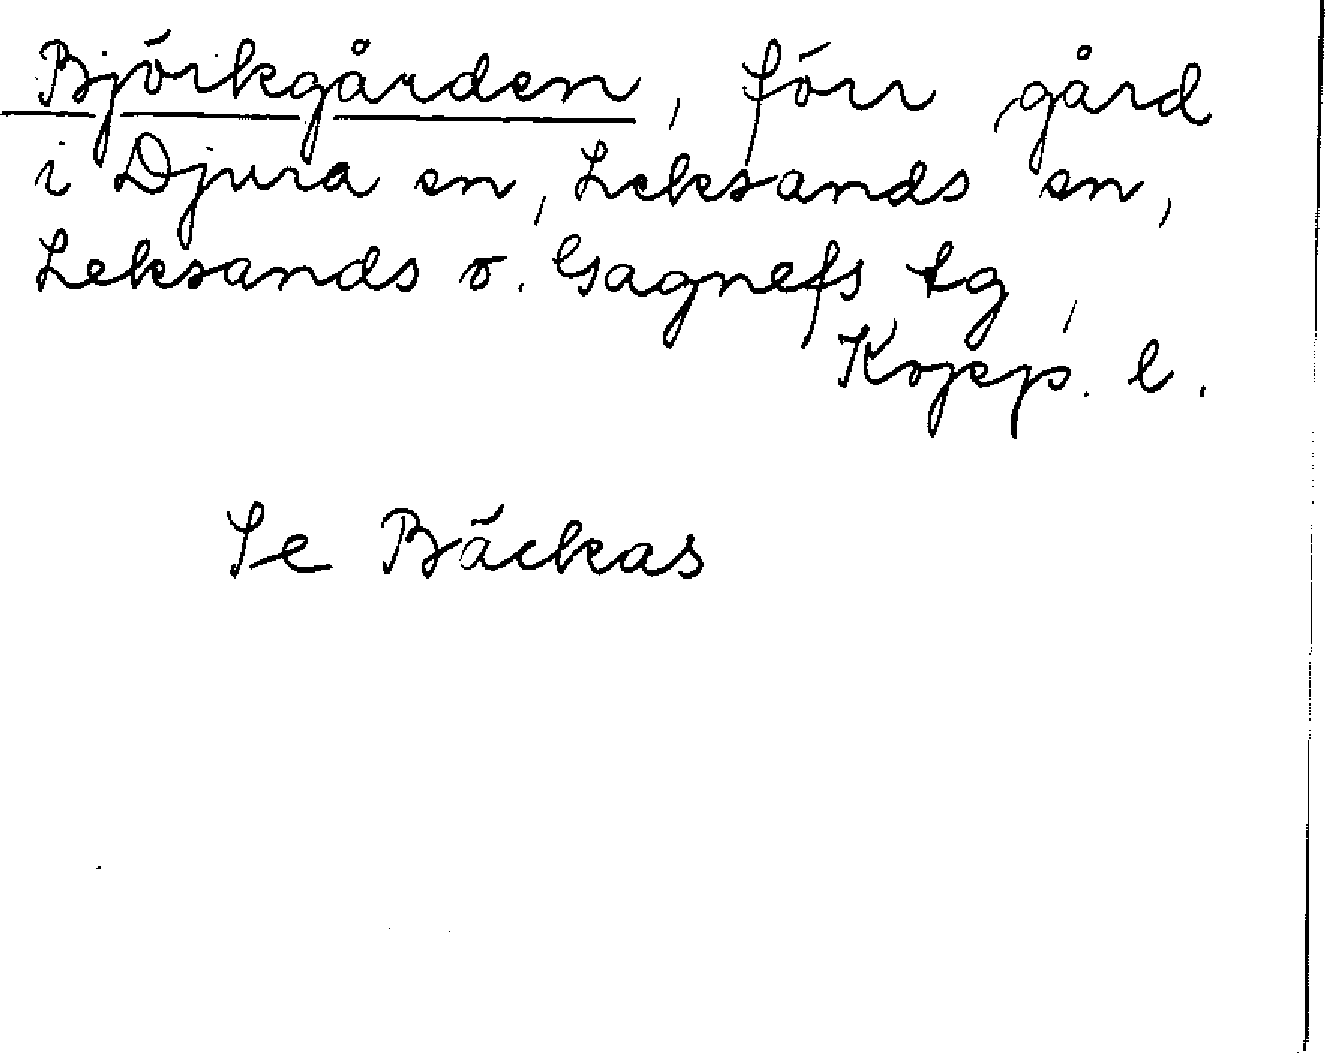 Björkgården, förr gård
i Djura sn, Leksands sn,
Leksands o. Gagnefs tg,
Kopp. l.
Se Bäckas